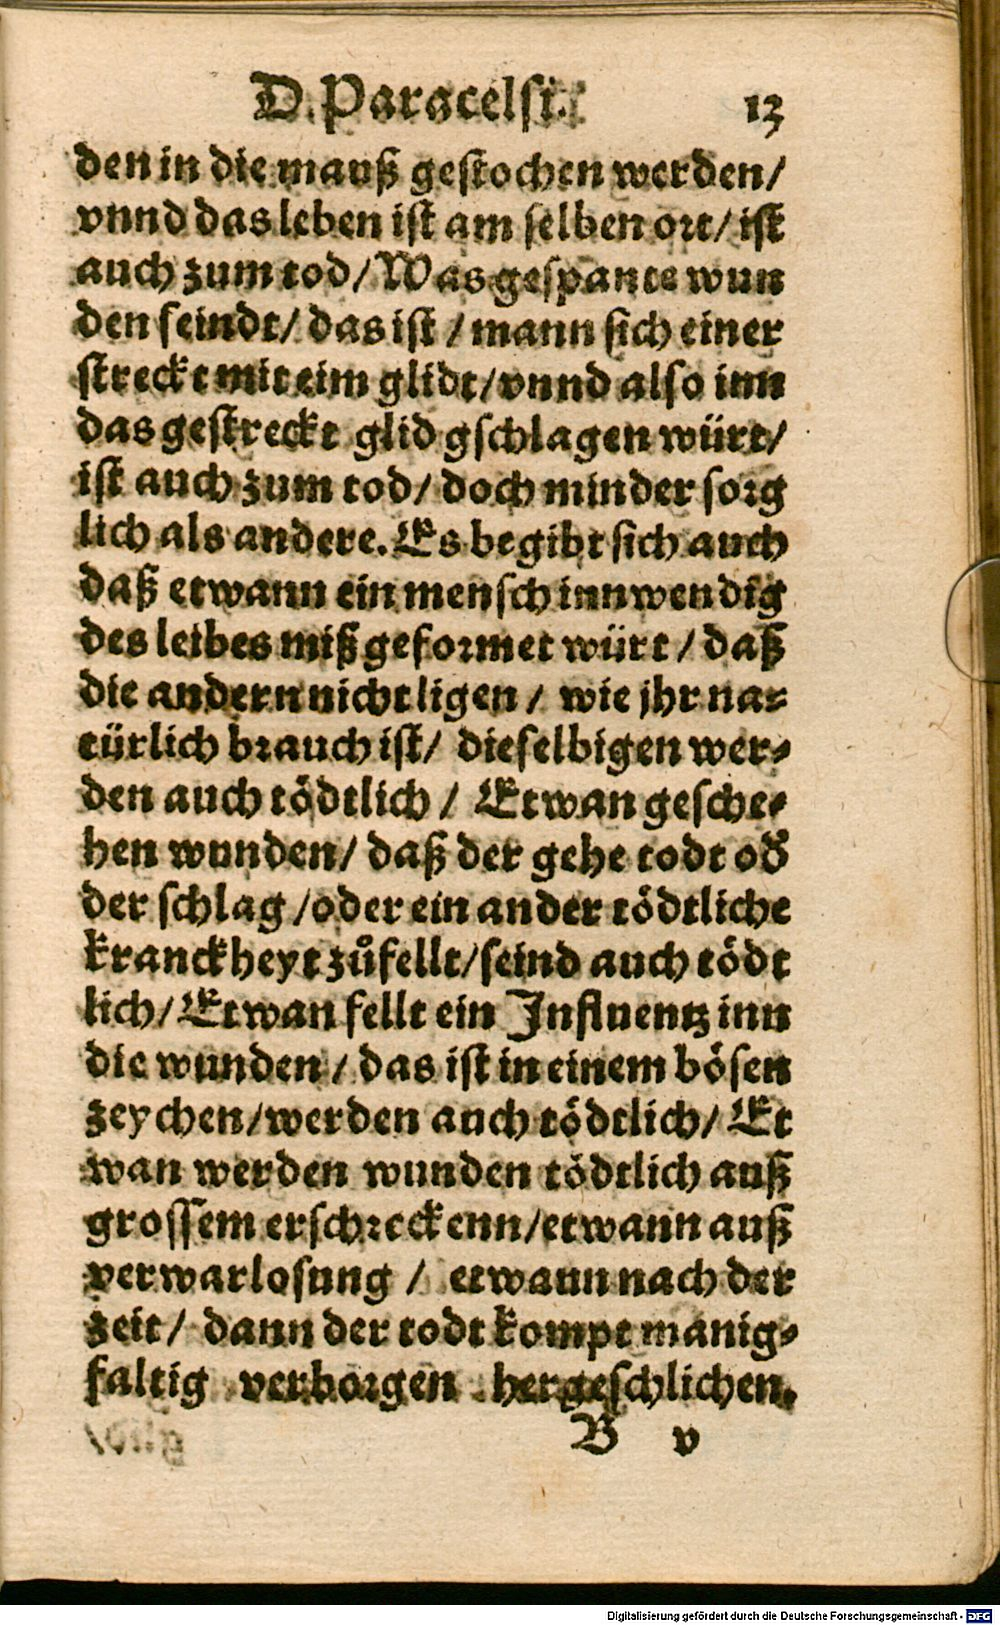 D. Paracelsi. 13
den in die mauß gestochen werden/
vnnd das leben ist am selben ort/ ist
auch zum tod/ Was gespante wun
den seindt/ das ist / mann sich einer
streckt mit eim glidt/ vnnd also inn
das gestreckt glid gschlagen würt/
ist auch zum tod/ doch minder sorg
lich als andere. Es begibt sich auch
daß etwann ein mensch innwendig
des leibes mißgeformet würt / daß
die andern nicht ligen / wie jhr na-
türlich brauch ist/ dieselbigen wer-
den auch tödtlich / Etwan gesche-
hen wunden/ daß der gehe todt od
der schlag /oder ein ander tödtliche
kranckheyt zůfellt/ seind auch tödt
lich/ Etwan fellt ein Influentz inn
die wunden / das ist in einem bösen
zeychen/werden auch tödtlich/ Et
wan werden wunden tödtlich auß
grossem erschreckenn/etwann auß
verwarlosung / etwann nach der
zeit/ dann der todt kompt manig-
faltig verborgen hergeschlichen.
B v
Digitalisierung gefördert durch die Deutsche Forschungsgemeinschaft - DFG